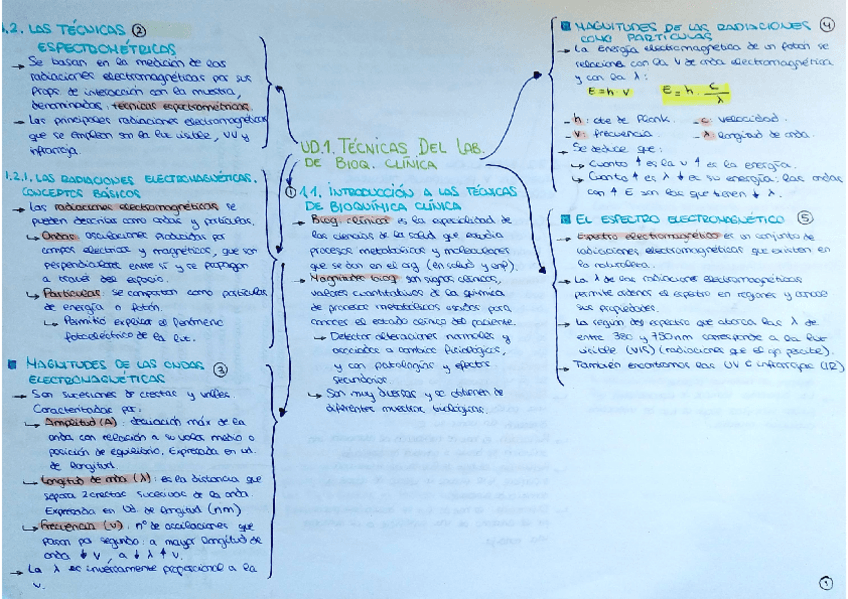 UD.1. TÉCNICAS DEL LAB.
DE BIOQ. CLÍNICA
① 1.1. INTRODUCCIÓN A LAS TÉCNICAS
DE BIOQUÍMICA CLÍNICA
→ Bioq. clínica: es la especialidad de
las ciencias de la salud que estudia
procesos metabólicos y moleculares
que se dan en el org (en salud y enf).
→ Magnitudes bioq: son signos clínicos,
valores cuantitativos de la química
de procesos metabólicos usados para
conocer el estado clínico del paciente.
↳ Detectar alteraciones normales y
asociadas a cambios fisiológicos,
y con patologías y efectos
secundarios
↳ Son muy diversas y se obtienen de
diferentes muestras biológicas.
1.2. LAS TÉCNICAS ②
ESPECTROMÉTRICAS
→ Se basan en la medición de las
radiaciones electromagnéticas por sus
props. de interacción con la muestra,
denominadas: técnicas espectrométricas.
→ Las principales radiaciones electromagnéticas
que se emplean son la luz visible, UV y
infrarroja.
1.2.1. LAS RADIACIONES ELECTROMAGNÉTICAS.
CONCEPTOS BÁSICOS
→ Las radiaciones electromagnéticas se
pueden describir como ondas y partículas.
↳ Ondas: oscilaciones producidas por
campos eléctricos y magnéticos, que son
perpendiculares entre sí y se propagan
a través del espacio.
↳ Partículas: se comportan como partículas
de energía o fotón.
↳ Permitió explicar el fenómeno
fotoeléctrico de la luz.
MAGNITUDES DE LAS ONDAS ③
ELECTROMAGNÉTICAS
→ Son sucesiones de crestas y valles.
Caracterizadas por:
↳ Amplitud (A): desviación máx de la
onda con relación a su valor medio o
posición de equilibrio. Expresada en ud.
de longitud.
↳ Longitud de onda (λ): es la distancia que
separa 2 crestas sucesivas de la onda.
Expresada en Ud. de longitud (nm)
↳ Frecuencia (ν): nº de oscilaciones que
pasan por segundo: a mayor longitud de
onda ↓ ν, a ↓ λ ↑ ν.
→ La λ es inversamente proporcional a la
ν.
MAGNITUDES DE LAS RADIACIONES ④
COMO PARTÍCULAS
→ La energía electromagnética de un fotón se
relaciona con la ν de onda electromagnética
y con la λ:
E = h · ν E = h · c/λ
- h: cte de Plank. - c: velocidad.
- ν: frecuencia. - λ: longitud de onda.
→ Se deduce que:
↳ Cuanto ↑ es la ν ↑ es la energía.
↳ Cuanto ↑ es λ ↓ es su energía: las ondas
con ↑ E son las que tienen ↓ λ.
EL ESPECTRO ELECTROMAGNÉTICO ⑤
→ Espectro electromagnético: es un conjunto de
radiaciones electromagnéticas que existen en
la naturaleza.
→ La λ de las radiaciones electromagnéticas
permite ordenar el espectro en regiones y conocer
sus propiedades.
→ La región del espectro que abarca las λ de
entre 380 y 750nm corresponde a la luz
visible (VIS) (radiaciones que el ojo percibe).
→ También encontramos las UV e infrarrojo (IR)
①